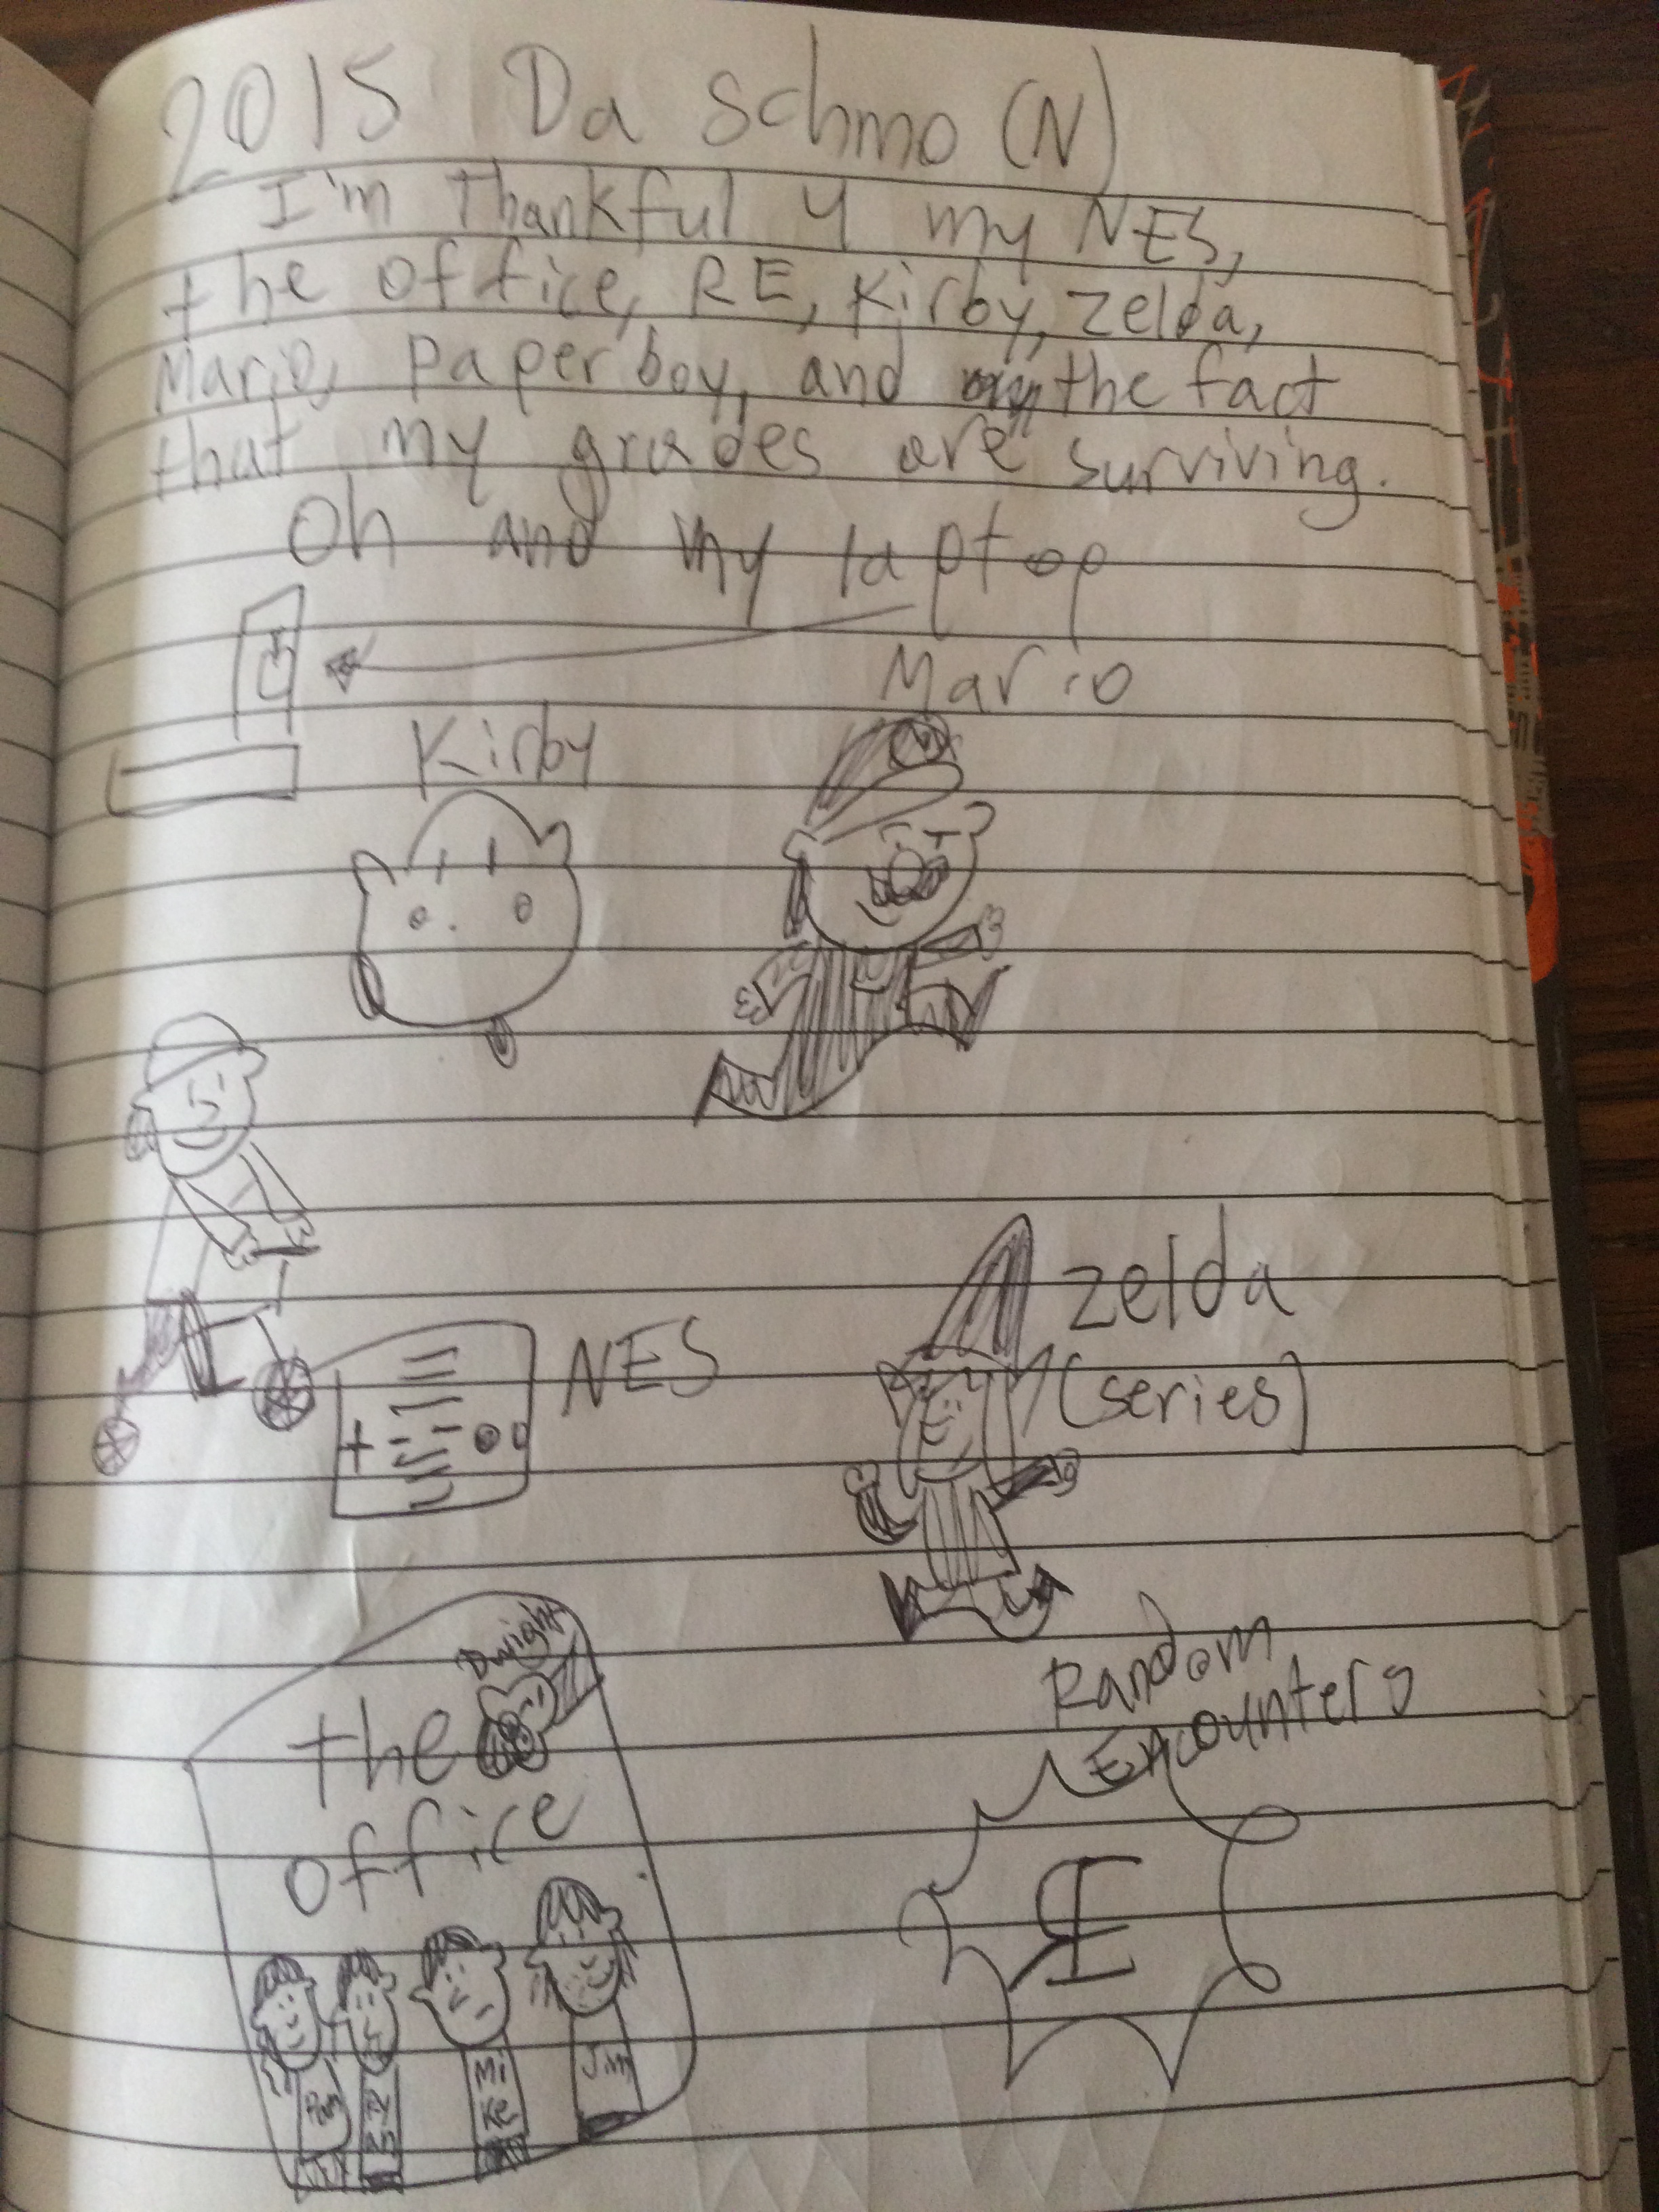 2015 Da Schmo (N)
I'm Thankful 4 my NES,
the office, RE, Kirby, Zelda,
Mario, Paperboy, and the fact
that my grades are surviving.
Oh and my laptop
Mario
Kirby
Zelda
(series)
NES
Random
Encounters
Dwight
the
office
RE
Pam
Ryan
Mi
ke
Jim